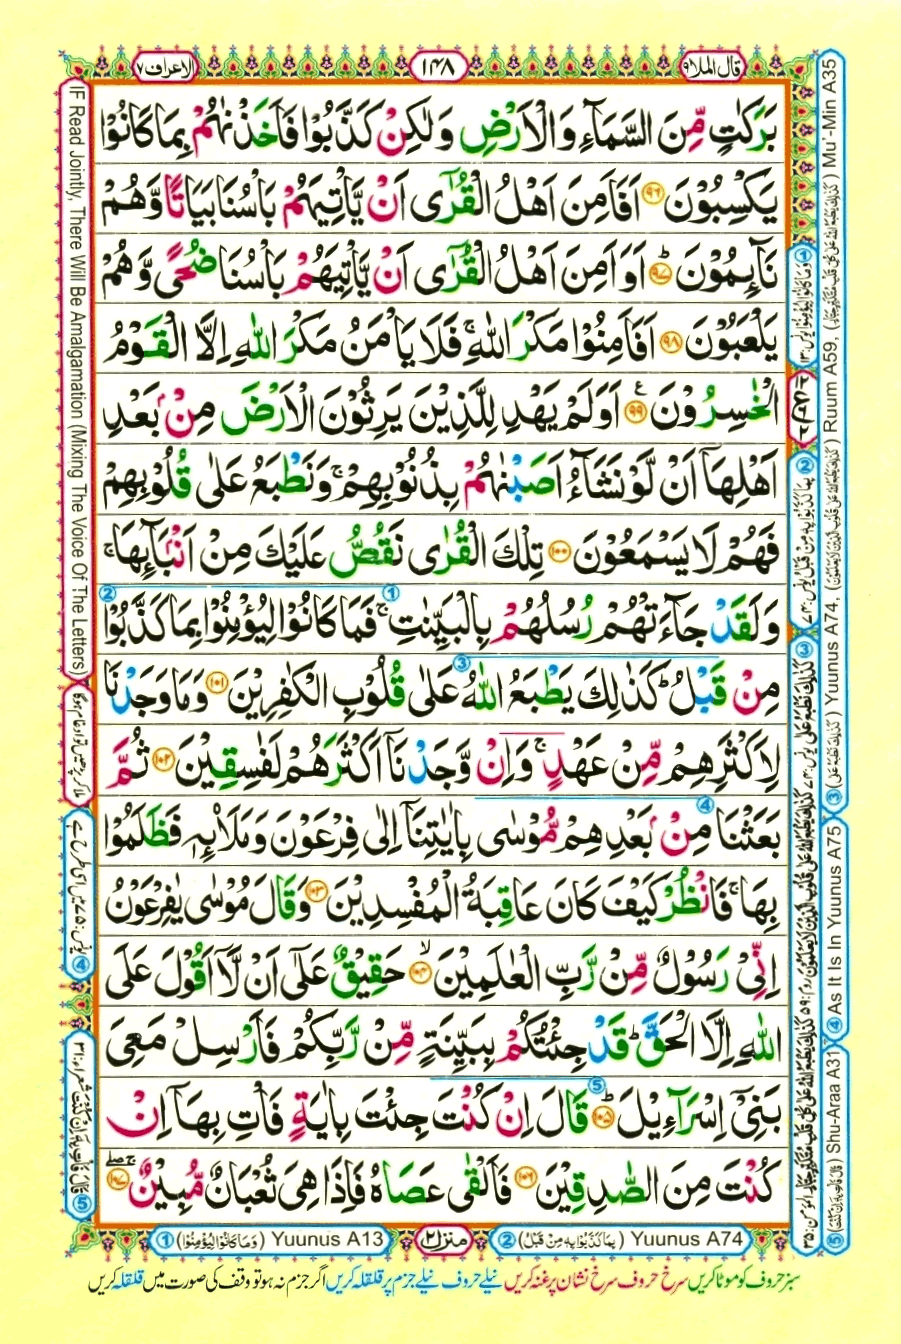 الاعراف ٧
١٤٨
قال الملا ٩
بَرَكٰتٍ مِّنَ السَّمَآءِ وَالْاَرْضِ وَلٰكِنْ كَذَّبُوْا فَاَخَذْنٰهُمْ بِمَا كَانُوْا
يَكْسِبُوْنَ ۹۶ اَفَاَمِنَ اَهْلُ الْقُرٰٓى اَنْ يَّاْتِيَهُمْ بَاْسُنَا بَيَاتًا وَّهُمْ
نَآئِمُوْنَ ۹۷ؕ اَوَاَمِنَ اَهْلُ الْقُرٰٓى اَنْ يَّاْتِيَهُمْ بَاْسُنَا ضُحًى وَّهُمْ
يَلْعَبُوْنَ ۹۸ اَفَاَمِنُوْا مَكْرَ اللّٰهِ ۚ فَلَا يَاْمَنُ مَكْرَ اللّٰهِ اِلَّا الْقَوْمُ
الْخٰسِرُوْنَ ۹۹ اَوَلَمْ يَهْدِ لِلَّذِيْنَ يَرِثُوْنَ الْاَرْضَ مِنْۢ بَعْدِ
اَهْلِهَاۤ اَنْ لَّوْ نَشَآءُ اَصَبْنٰهُمْ بِذُنُوْبِهِمْ ۚ وَنَطْبَعُ عَلٰى قُلُوْبِهِمْ
فَهُمْ لَا يَسْمَعُوْنَ ۱۰۰ تِلْكَ الْقُرٰى نَقُصُّ عَلَيْكَ مِنْ اَنْۢبَآئِهَا ۚ
وَلَقَدْ جَآءَتْهُمْ رُسُلُهُمْ بِالْبَيِّنٰتِ ۚ فَمَا كَانُوْا لِيُؤْمِنُوْا بِمَا كَذَّبُوْا
مِنْ قَبْلُ ؕ كَذٰلِكَ يَطْبَعُ اللّٰهُ عَلٰى قُلُوْبِ الْكٰفِرِيْنَ ۱۰۱ وَمَا وَجَدْنَا
لِاَكْثَرِهِمْ مِّنْ عَهْدٍ ۚ وَاِنْ وَّجَدْنَاۤ اَكْثَرَهُمْ لَفٰسِقِيْنَ ۱۰۲ ثُمَّ
بَعَثْنَا مِنْۢ بَعْدِهِمْ مُّوْسٰى بِاٰيٰتِنَاۤ اِلٰى فِرْعَوْنَ وَمَلَا۟ئِهٖ فَظَلَمُوْا
بِهَا ۚ فَانْظُرْ كَيْفَ كَانَ عَاقِبَةُ الْمُفْسِدِيْنَ ۱۰۳ وَقَالَ مُوْسٰى يٰفِرْعَوْنُ
اِنِّيْ رَسُوْلٌ مِّنْ رَّبِّ الْعٰلَمِيْنَ ۱۰۴ۙ حَقِيْقٌ عَلٰٓى اَنْ لَّاۤ اَقُوْلَ عَلَى
اللّٰهِ اِلَّا الْحَقَّ ؕ قَدْ جِئْتُكُمْ بِبَيِّنَةٍ مِّنْ رَّبِّكُمْ فَاَرْسِلْ مَعِيَ
بَنِيْۤ اِسْرَآءِيْلَ ۱۰۵ؕ قَالَ اِنْ كُنْتَ جِئْتَ بِاٰيَةٍ فَاْتِ بِهَاۤ اِنْ
كُنْتَ مِنَ الصّٰدِقِيْنَ ۱۰۶ فَاَلْقٰى عَصَاهُ فَاِذَا هِيَ ثُعْبَانٌ مُّبِيْنٌ ۱۰۷
① (وَمَا كَانُوْا لِيُؤْمِنُوْا) Yuunus A13
منزل ٢
② (بِمَا كَذَّبُوْا بِهٖ مِنْ قَبْلُ) Yuunus A74
سبز حروف کو موٹا کریں سرخ حروف سرخ نشان پر غنہ کریں نیلے حروف نیلے جزم پر قلقلہ کریں اگر جزم نہ ہو تو وقف کی صورت میں قلقلہ کریں
IF Read Jointly, There Will Be Amalgamation (Mixing The Voice Of The Letters)
ملا کر پڑھیں تو ادغام ہوگا
⑤ Shu-Araa A31
④ As It Is In Yuunus A75
③ Yuunus A74, Ruum A59, Mu'-Min A35